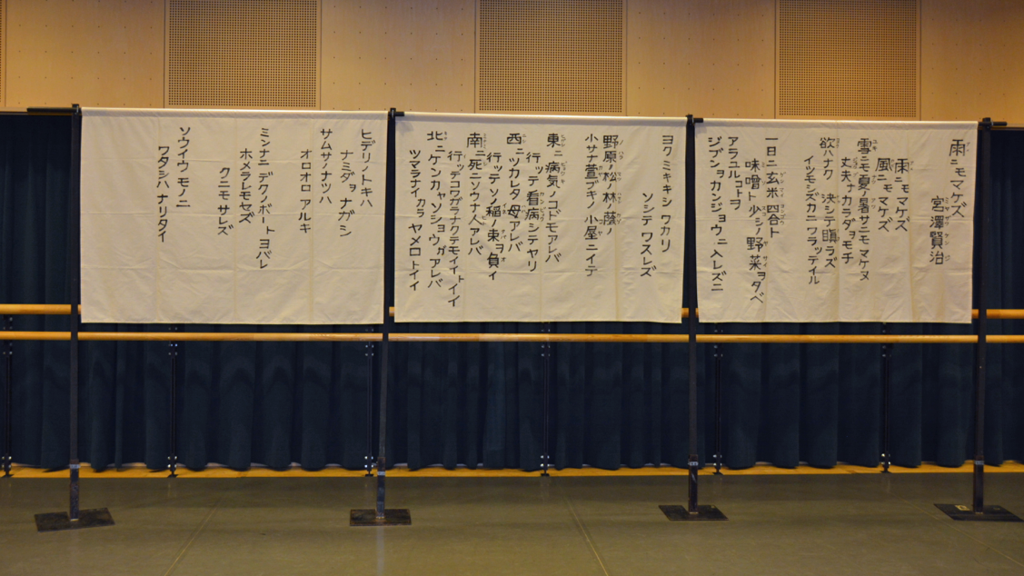 雨ニモマケズ
宮澤賢治
雨ニモマケズ
風ニモマケズ
雪ニモ夏ノ暑サニモマケヌ
丈夫ナカラダヲモチ
欲ハナク 決シテ瞋ラズ
イツモシズカニワラッテイル
一日ニ玄米四合ト
味噌ト少シノ野菜ヲタベ
アラユルコトヲ
ジブンヲカンジョウニ入レズニ
ヨクミキキシ ワカリ
ソシテ ワスレズ
野原ノ松ノ林ノ蔭ノ
小サナ萱ブキノ小屋ニイテ
東ニ病気ノコドモアレバ
行ッテ看病シテヤリ
西ニツカレタ母アレバ
行ッテソノ稲ノ束ヲ負イ
南ニ死ニソウナ人アレバ
行ッテコワガラナクテモイイトイイ
北ニケンカヤソショウガアレバ
ツマラナイカラヤメロトイイ
ヒデリノトキハ
ナミダヲナガシ
サムサノナツハ
オロオロアルキ
ミンナニデクノボートヨバレ
ホメラレモセズ
クニモサレズ
ソウイウモノニ
ワタシハナリタイ